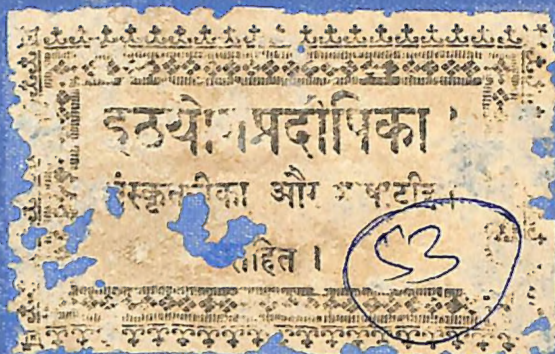 हठयोगप्रदीपिका ।
संस्कृतटीका और भाषाटीका
सहित ।